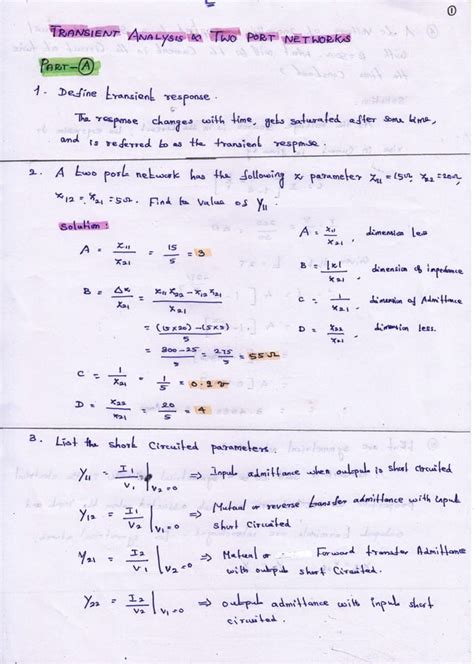 ①
TRANSIENT ANALYSIS & TWO PORT NETWORKS
PART-Ⓐ
1. Define transient response.
The response changes with time, gets saturated after some time,
and is referred to as the transient response.
2. A two port network has the following z parameter z₁₁=15Ω, z₂₂=20Ω,
z₁₂ = z₂₁ = 5Ω. Find the value of Y₁₁
Solution:
A = z₁₁/z₂₁ = 15/5 = 3
B = Δz/z₂₁ = z₁₁z₂₂-z₁₂z₂₁/z₂₁
= (15x20)-(5x5)/5
= 300-25/5 = 275/5 = 55Ω
C = 1/z₂₁ = 1/5 = 0.2℧
D = z₂₂/z₂₁ = 20/5 = 4
A = z₁₁/z₂₁, dimension less
B = |z|/z₂₁, dimension of impedance
C = 1/z₂₁, dimension of Admittance
D = z₂₂/z₂₁, dimension less.
3. List the short circuited parameters.
Y₁₁ = I₁/V₁ | V₂=0 ⇒ Input admittance when output is short circuited
Y₁₂ = I₁/V₂ | V₁=0 ⇒ Mutual or reverse transfer admittance with input
short circuited
Y₂₁ = I₂/V₁ | V₂=0 ⇒ Mutual or Forward transfer Admittance
with output short circuited.
Y₂₂ = I₂/V₂ | V₁=0 ⇒ output admittance with input short
circuited.